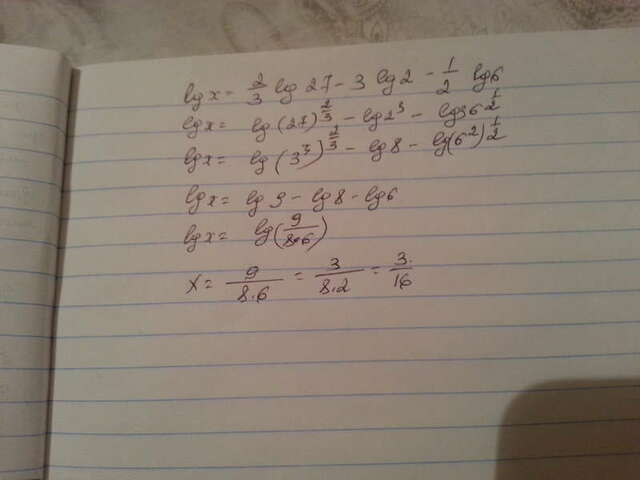 lg x = 2/3 lg 27 - 3 lg 2 - 1/2 lg 6
lg x = lg (27)^(2/3) - lg 2^3 - lg 36^(1/2)
lg x = lg (3^3)^(2/3) - lg 8 - lg (6^2)^(1/2)
lg x = lg 9 - lg 8 - lg 6
lg x = lg (9/(8·6))
x = 9/(8·6) = 3/(8·2) = 3/16